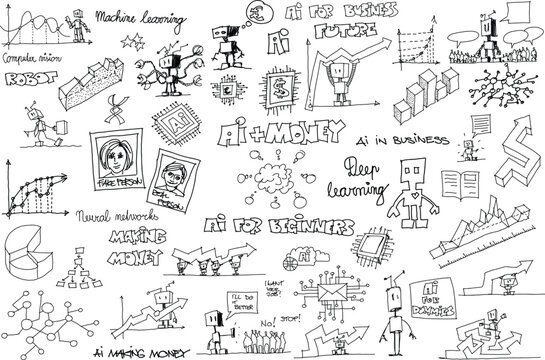 Machine learning
£
Ai FOR BUSINESS
FUTURE
Ai
Computer vision
ROBOT
€
$
Ai
Ai+MONEY
Ai IN BUSINESS
FAKE PERSON
REAL PERSON
Deep learning
Neural networks
Ai FOR BEGINNERS
MAKING
MONEY
Ai
I WANT
YOUR
JOB!
I'LL DO IT
BETTER
NO!
STOP!
Ai
FOR
DUMMIES
Ai MAKING MONEY